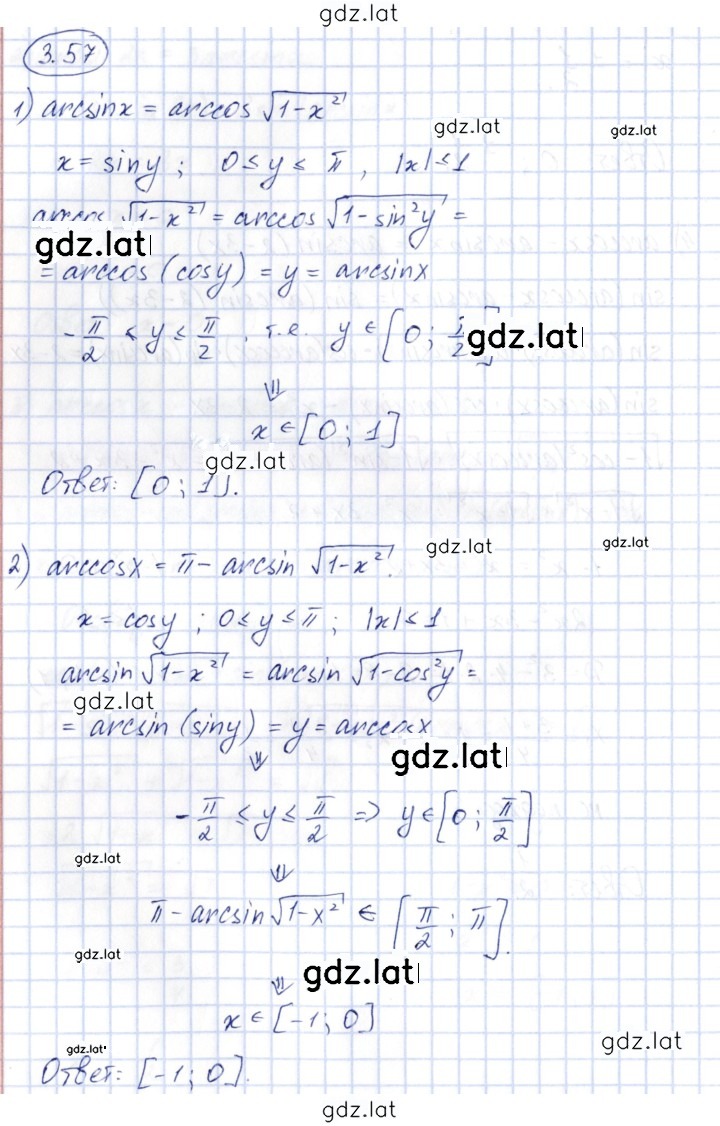 gdz.lat
3.57
1) arcsinx = arccos √(1-x²)
gdz.lat gdz.lat
x = siny ; 0 ≤ y ≤ π , |x| ≤ 1
√(1-x²) = arccos √(1-sin²y) =
gdz.lat
= arccos (cosy) = y = arcsinx
-π/2 ≤ y ≤ π/2 , т.е. y ∈ [0;
gdz.lat
⇓
x ∈ [0; 1]
gdz.lat
Ответ: [0; 1].
gdz.lat gdz.lat
2) arccosx = π - arcsin √(1-x²).
x = cosy ; 0 ≤ y ≤ π ; |x| ≤ 1
arcsin √(1-x²) = arcsin √(1-cos²y) =
gdz.lat
= arcsin (siny) = y = arccosx
gdz.lat
⇓
-π/2 ≤ y ≤ π/2 => y ∈ [0; π/2]
gdz.lat
⇓
π - arcsin √(1-x²) ∈ [π/2; π].
gdz.lat
gdz.lat
⇓
x ∈ [-1; 0]
gdz.lat
gdz.lat
Ответ: [-1; 0].
gdz.lat